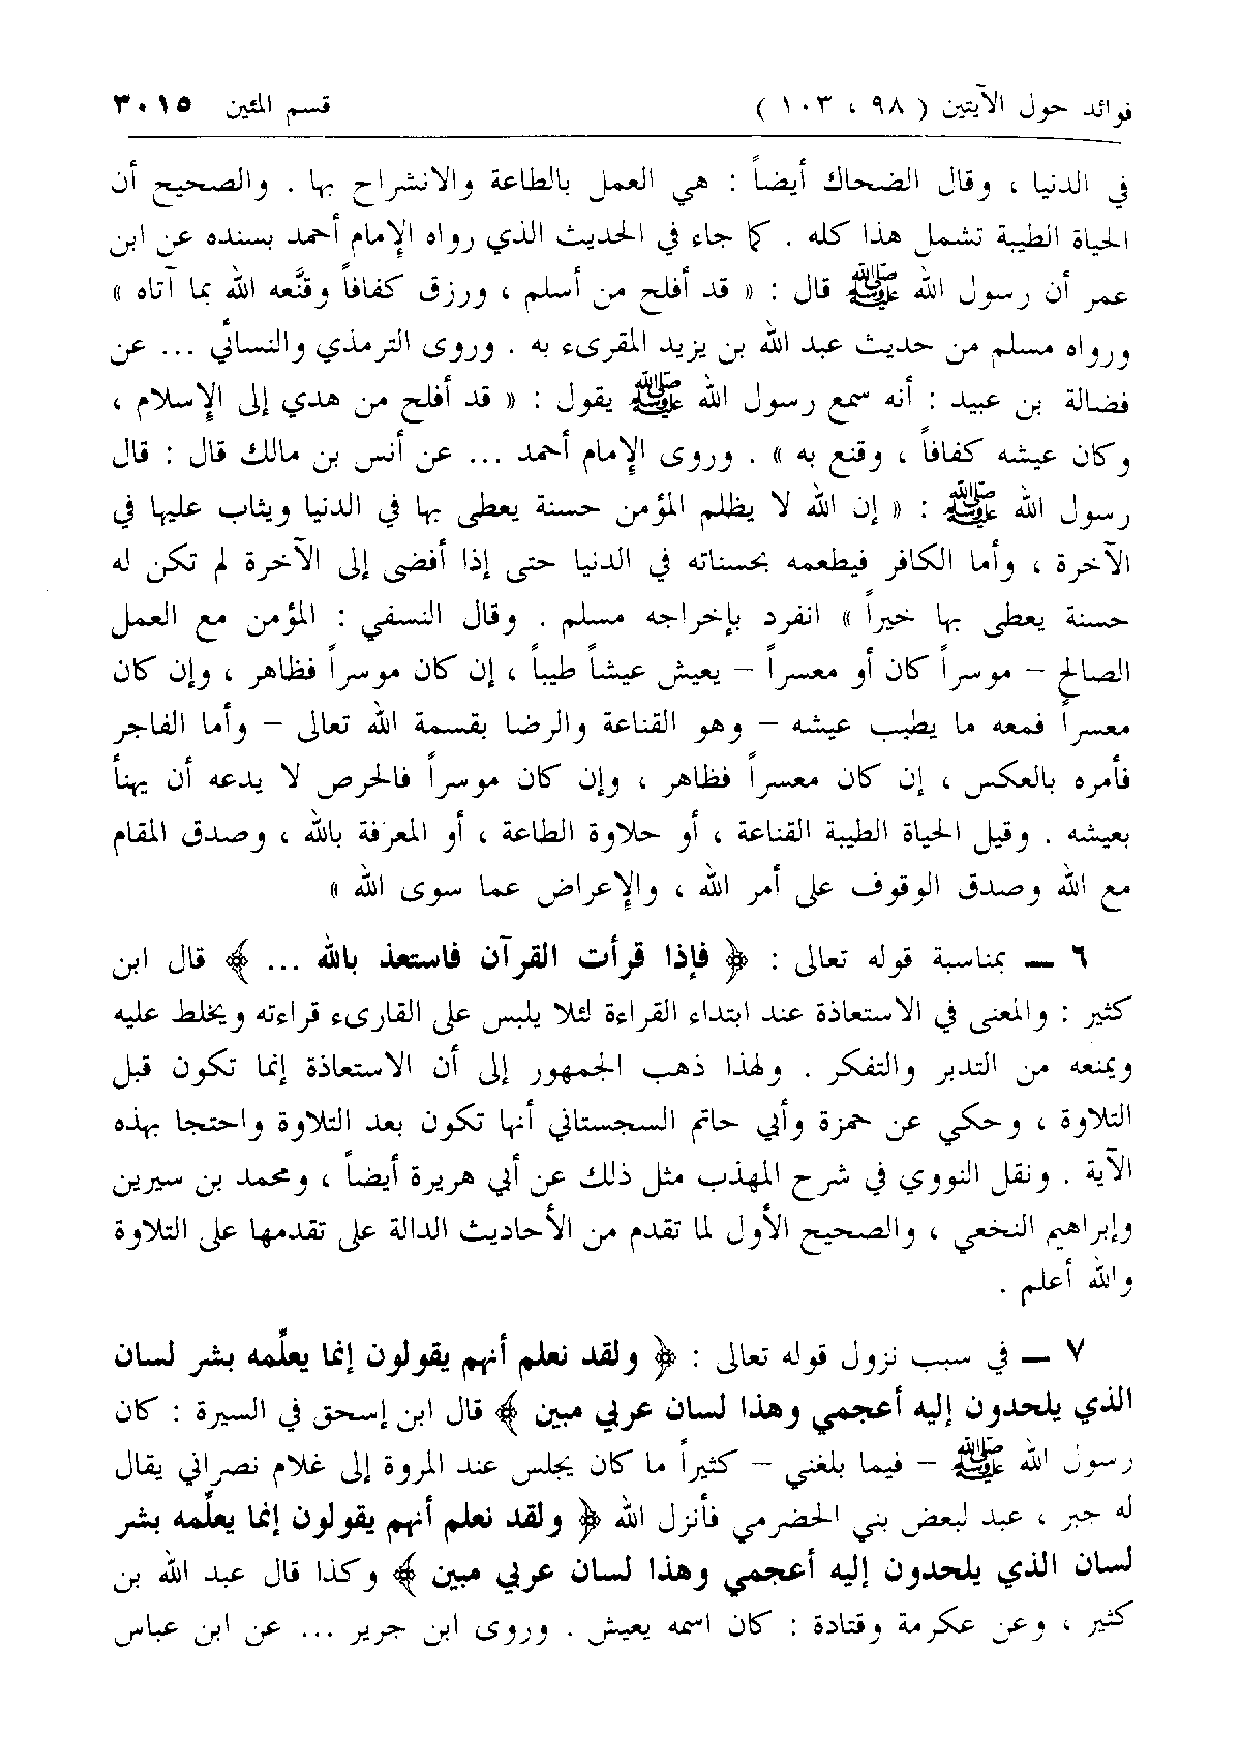 فوائد حول الآيتين ( ٩٨ ، ١٠٣ ) قسم المئين ٣٠١٥
في الدنيا ، وقال الضحاك أيضاً : هي العمل بالطاعة والانشراح بها . والصحيح أن
الحياة الطيبة تشمل هذا كله . كما جاء في الحديث الذي رواه الإمام أحمد بسنده عن ابن
عمر أن رسول الله ﷺ قال : « قد أفلح من أسلم ، ورزق كفافاً وقنَّعه الله بما آتاه »
ورواه مسلم من حديث عبد الله بن يزيد المقرىء به . وروى الترمذي والنسائي ... عن
فضالة بن عبيد : أنه سمع رسول الله ﷺ يقول : « قد أفلح من هدي إلى الإسلام ،
وكان عيشه كفافاً ، وقنع به » . وروى الإمام أحمد ... عن أنس بن مالك قال : قال
رسول الله ﷺ : « إن الله لا يظلم المؤمن حسنة يعطى بها في الدنيا ويثاب عليها في
الآخرة ، وأما الكافر فيطعمه بحسناته في الدنيا حتى إذا أفضى إلى الآخرة لم تكن له
حسنة يعطى بها خيراً » انفرد بإخراجه مسلم . وقال النسفي : المؤمن مع العمل
الصالح - موسراً كان أو معسراً - يعيش عيشاً طيباً ، إن كان موسراً فظاهر ، وإن كان
معسراً فمعه ما يطيب عيشه - وهو القناعة والرضا بقسمة الله تعالى - وأما الفاجر
فأمره بالعكس ، إن كان معسراً فظاهر ، وإن كان موسراً فالحرص لا يدعه أن يهنأ
بعيشه . وقيل الحياة الطيبة القناعة ، أو حلاوة الطاعة ، أو المعرفة بالله ، وصدق المقام
مع الله وصدق الوقوف على أمر الله ، والإعراض عما سوى الله »
٦ — بمناسبة قوله تعالى : ﴿ فإذا قرأت القرآن فاستعذ بالله ... ﴾ قال ابن
كثير : والمعنى في الاستعاذة عند ابتداء القراءة لئلا يلبس على القارىء قراءته ويخلط عليه
ويمنعه من التدبر والتفكر . ولهذا ذهب الجمهور إلى أن الاستعاذة إنما تكون قبل
التلاوة ، وحكي عن حمزة وأبي حاتم السجستاني أنها تكون بعد التلاوة واحتجا بهذه
الآية . ونقل النووي في شرح المهذب مثل ذلك عن أبي هريرة أيضاً ، ومحمد بن سيرين
وإبراهيم النخعي ، والصحيح الأول لما تقدم من الأحاديث الدالة على تقدمها على التلاوة
والله أعلم .
٧ — في سبب نزول قوله تعالى : ﴿ ولقد نعلم أنهم يقولون إنما يعلّمه بشر لسان
الذي يلحدون إليه أعجمي وهذا لسان عربي مبين ﴾ قال ابن إسحق في السيرة : كان
رسول الله ﷺ - فيما بلغني - كثيراً ما كان يجلس عند المروة إلى غلام نصراني يقال
له جبر ، عبد لبعض بني الحضرمي فأنزل الله ﴿ ولقد نعلم أنهم يقولون إنما يعلّمه بشر
لسان الذي يلحدون إليه أعجمي وهذا لسان عربي مبين ﴾ وكذا قال عبد الله بن
كثير ، وعن عكرمة وقتادة : كان اسمه يعيش . وروى ابن جرير ... عن ابن عباس